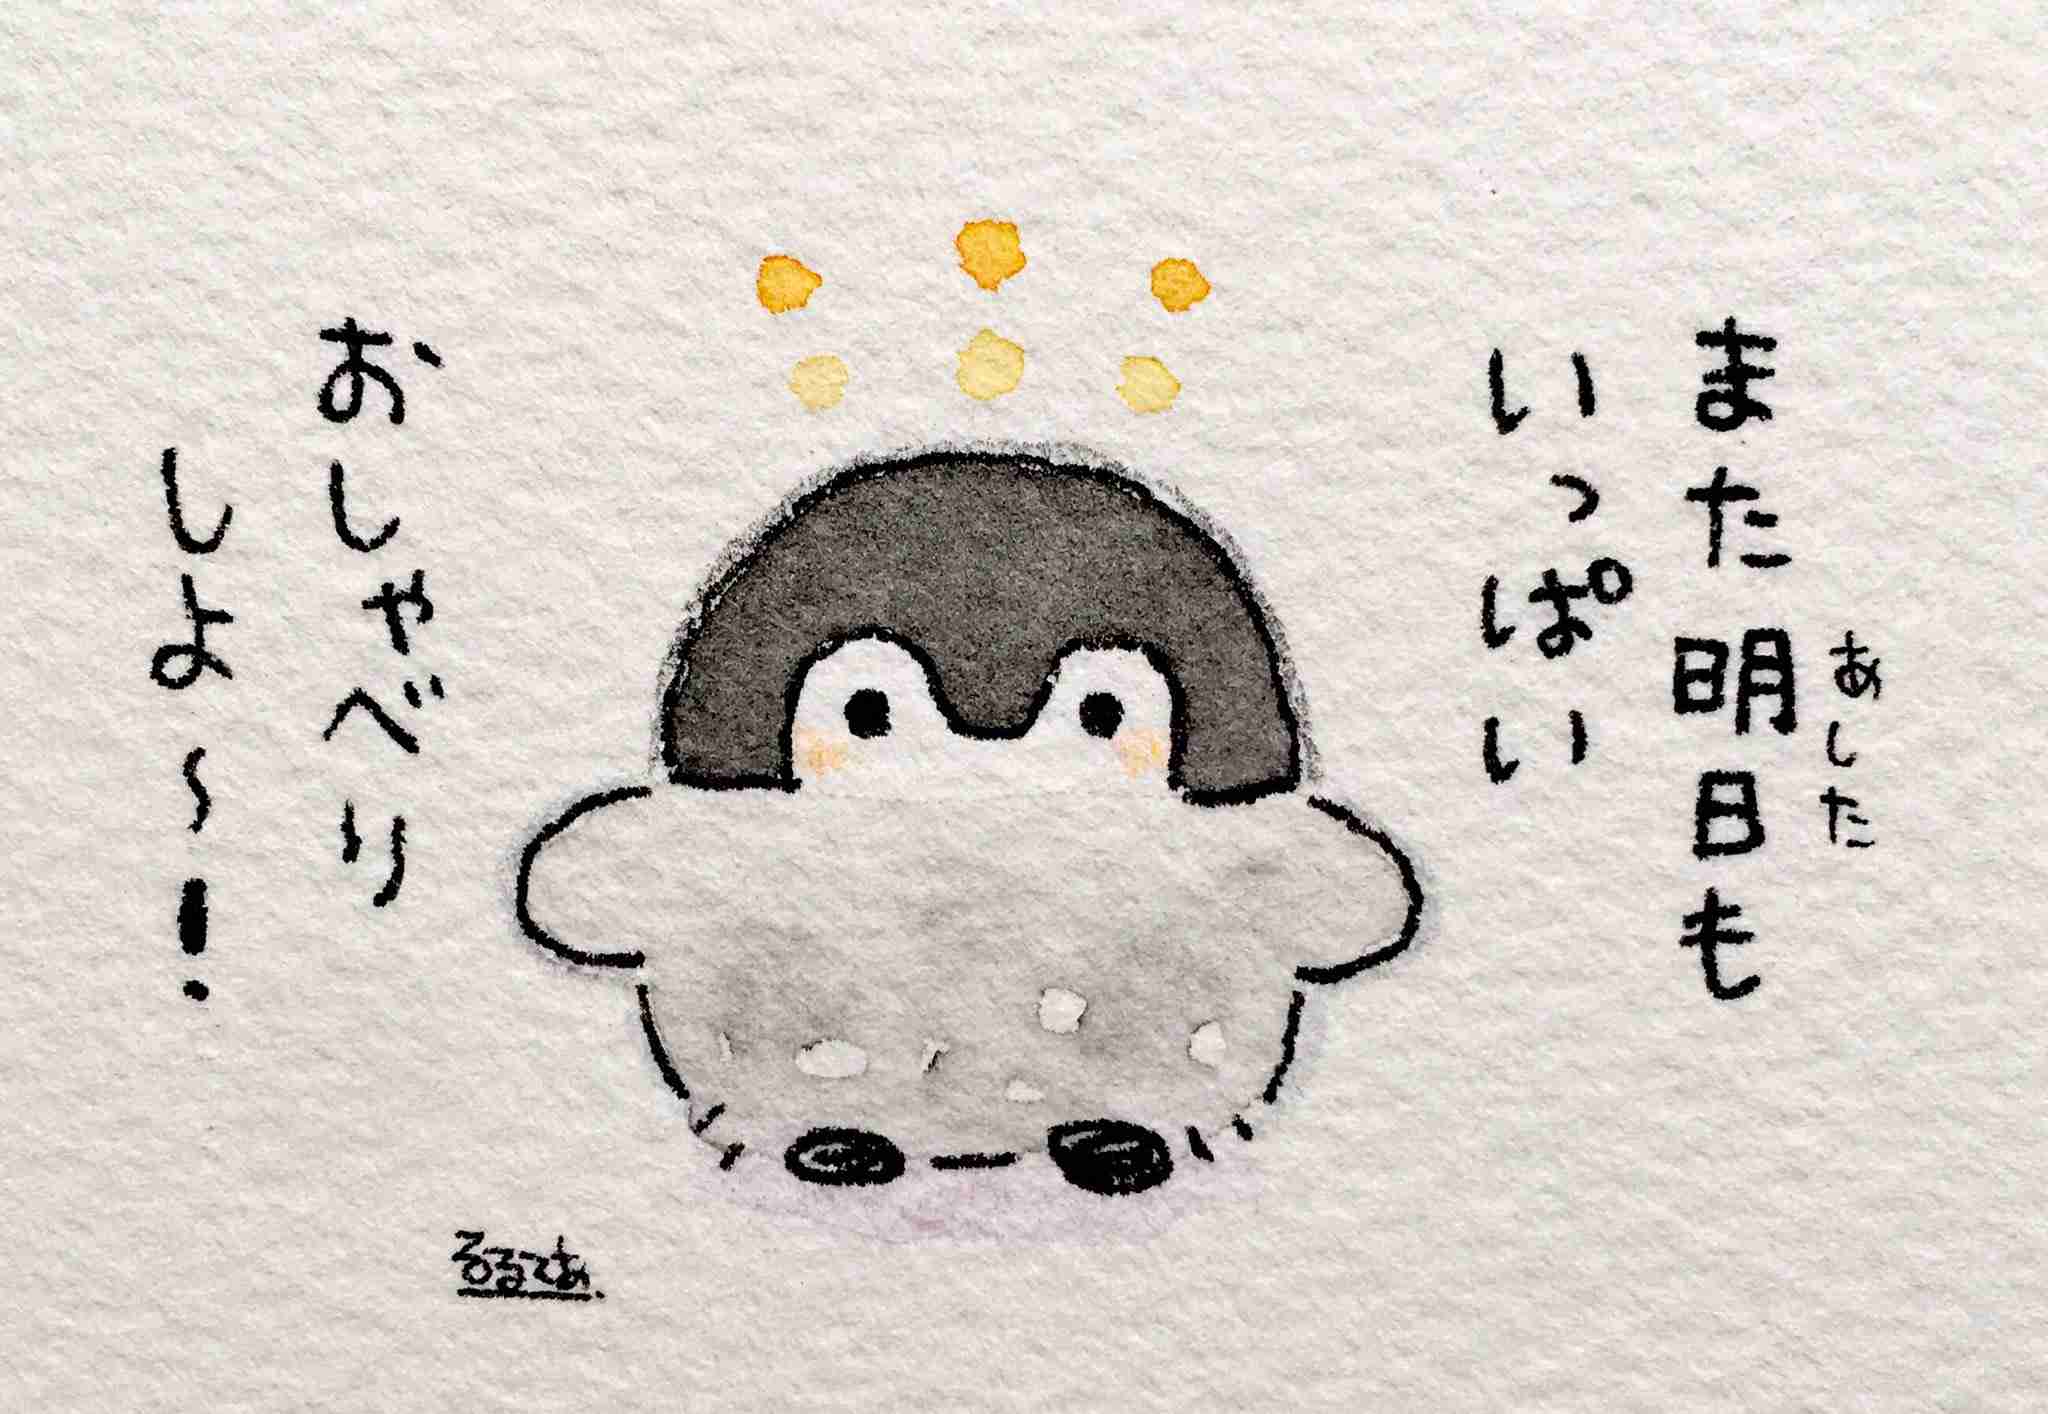 また明日も
あした
いっぱい
おしゃべり
しよ〜!
るるてあ